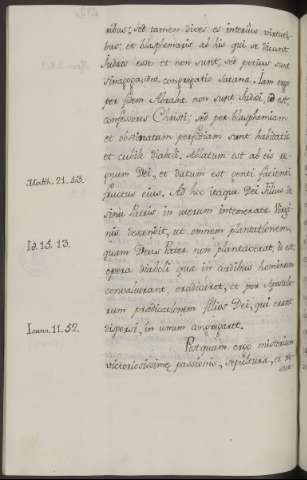 ribus; sed tamen dives es interius virtuti-
bus; et blasphemaris ab his qui se dicunt
Judæos esse et non sunt, sed potius sunt
sinagoga, seu congregatio Satanæ. Iam ergo
per fidem Abrahæ non sunt Judæi, id est,
confessores Christi; sed per blasphemiam
et obstinatam perfidiam sunt habitatio
et cubile diaboli. Ablatum est ab eis re-
Matth. 21. 43. gnum Dei, et datum est genti facienti
fructus eius. Ad hoc itaque Dei Filius de
sinu Patris in uterum intemeratæ Virgi-
nis descendit, ut omnem plantationem,
Id. 15. 13. quam Deus Pater non plantaverat, id est,
opera diaboli quæ in cordibus hominum
convaluerant, eradicaret, et per Apostolo-
rum prædicationem filios Dei, qui erant
Ioann. 11. 52. dispersi, in unum congregaret.
Postquam ergo misterium
victoriosissimæ passionis, sepulturæ, et re-